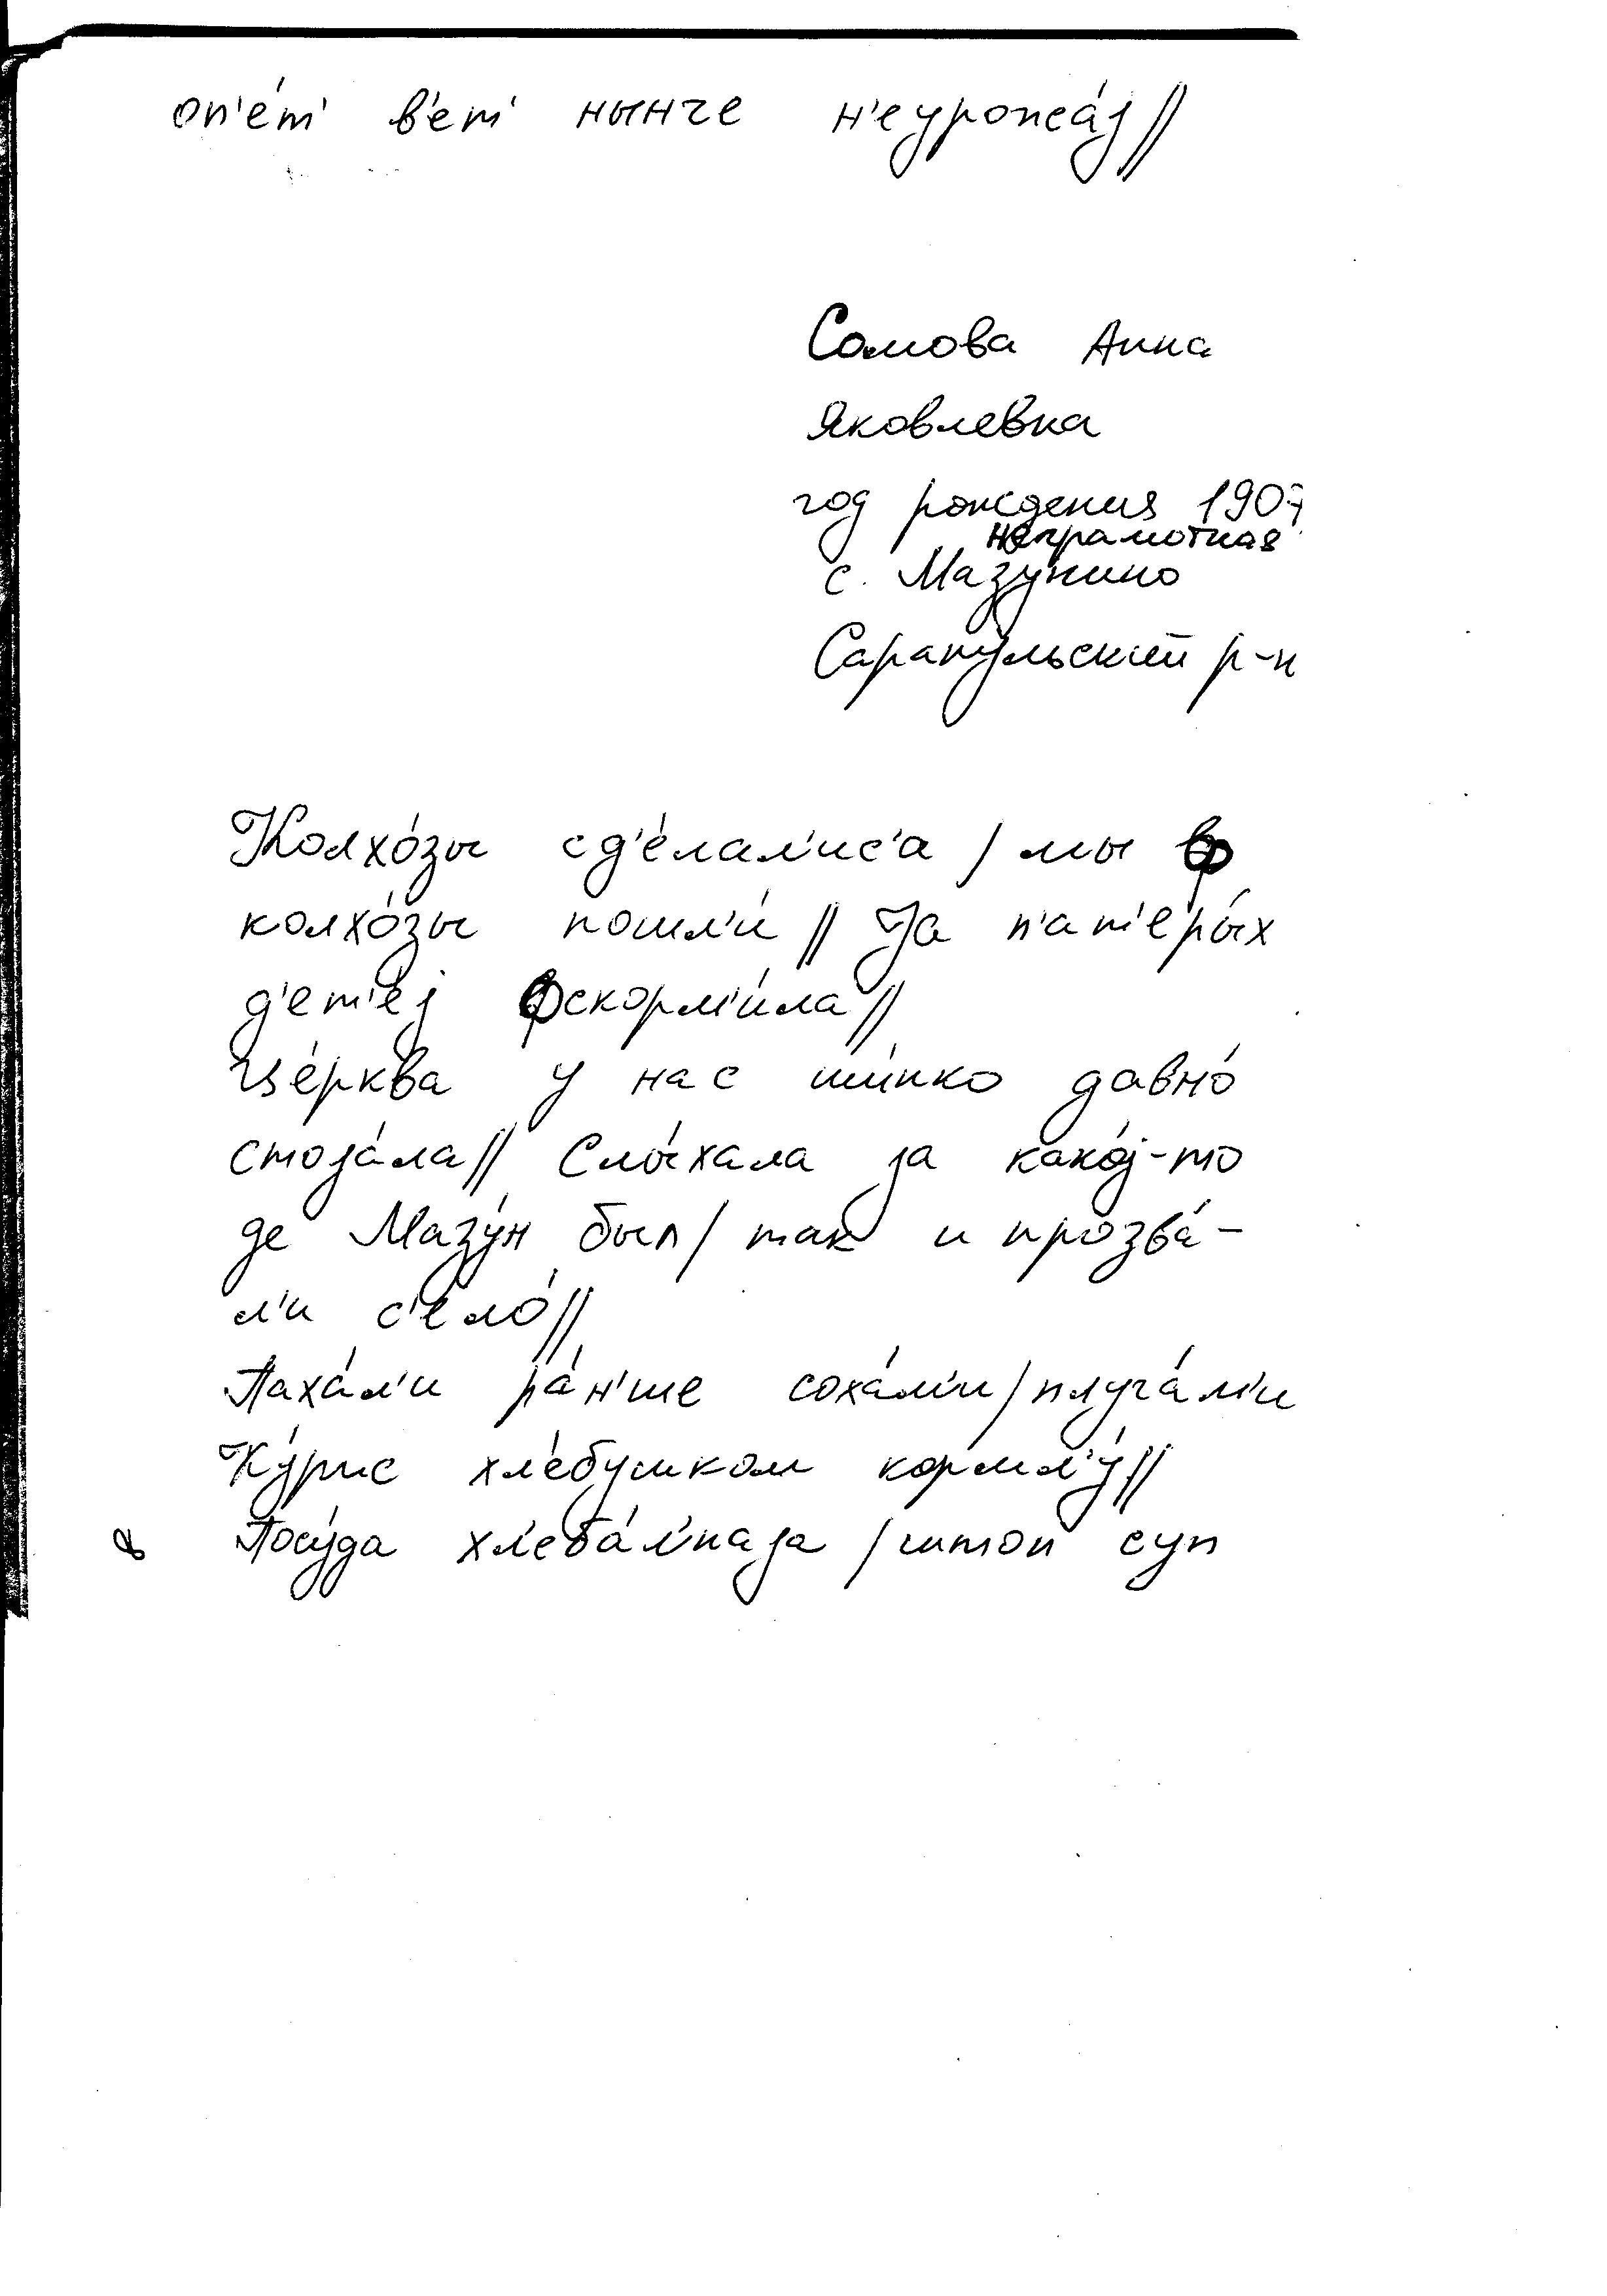 оп'е́т' в'ет' нынче н'еурожа́j//
Сомова Анна
Яковлевна
год рождения 1907
неграмотная
с. Мазунино
Сарапульский р-н
Колхо́зы сд'е́лал'ис'а / мы ф
колхо́зы пошл'и́ // Jа п'ат'еры́х
д'ет'е́j фскорм'и́ла //
Це́рква у нас ши́пко давно́
стоjа́ла // Слы́хала jа како́j-то
де Мазу́н был / так и прозва́-
л'и с'ело́ //
Паха́л'и ра́н'ше соха́м'и / плуга́м'и
Ку́риц хле́бушком кормл'у́ //
Посу́да хл'еба́л'наjа / штоп суп